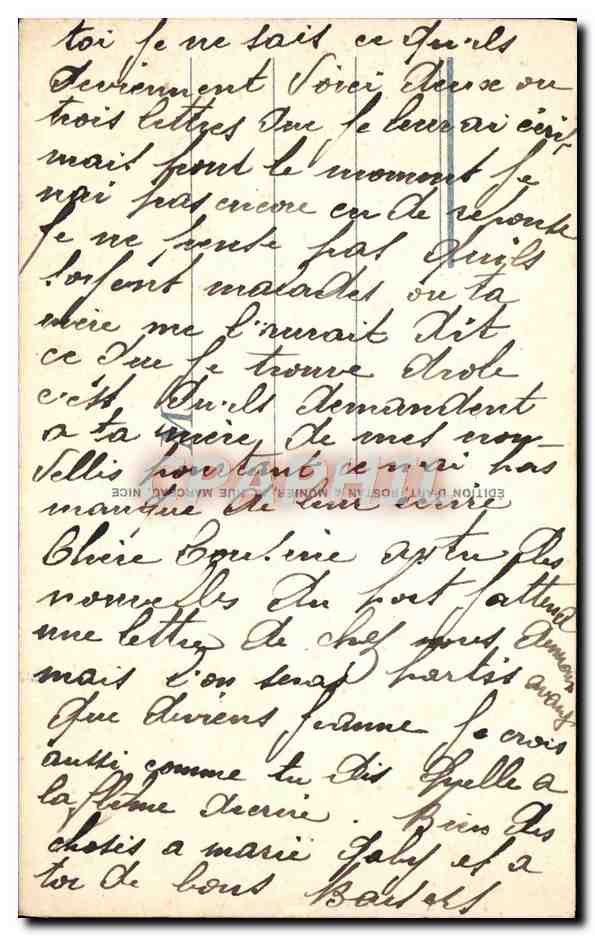 toi je ne sais ce qu'ils
deviennent voici deux ou
trois lettres que je leur ai écrit
mais pour le moment je
n'ai pas encore eu de réponse
je ne pense pas qu'ils
soient malades ou ta
mère me l'aurait dit
ce que je trouve drole
c'est qu'ils demandent
a ta mère de mes nou
vellis pourtant ce n'ai pas
manque de leur écrire
Chère Cousine as tu des
nouvelles du port j'attend
une lettre de chez nous
mais l'on seras partis avant
que deviens jeanne je crois
aussi comme tu dis quelle a
la flème décrire. Bien des
choses a marie Gaby et a
toi de bons Baisers
EDITION D'ART, ROSTAN & MUNIER, RUE MARCEAU, NICE
CPAPHIL